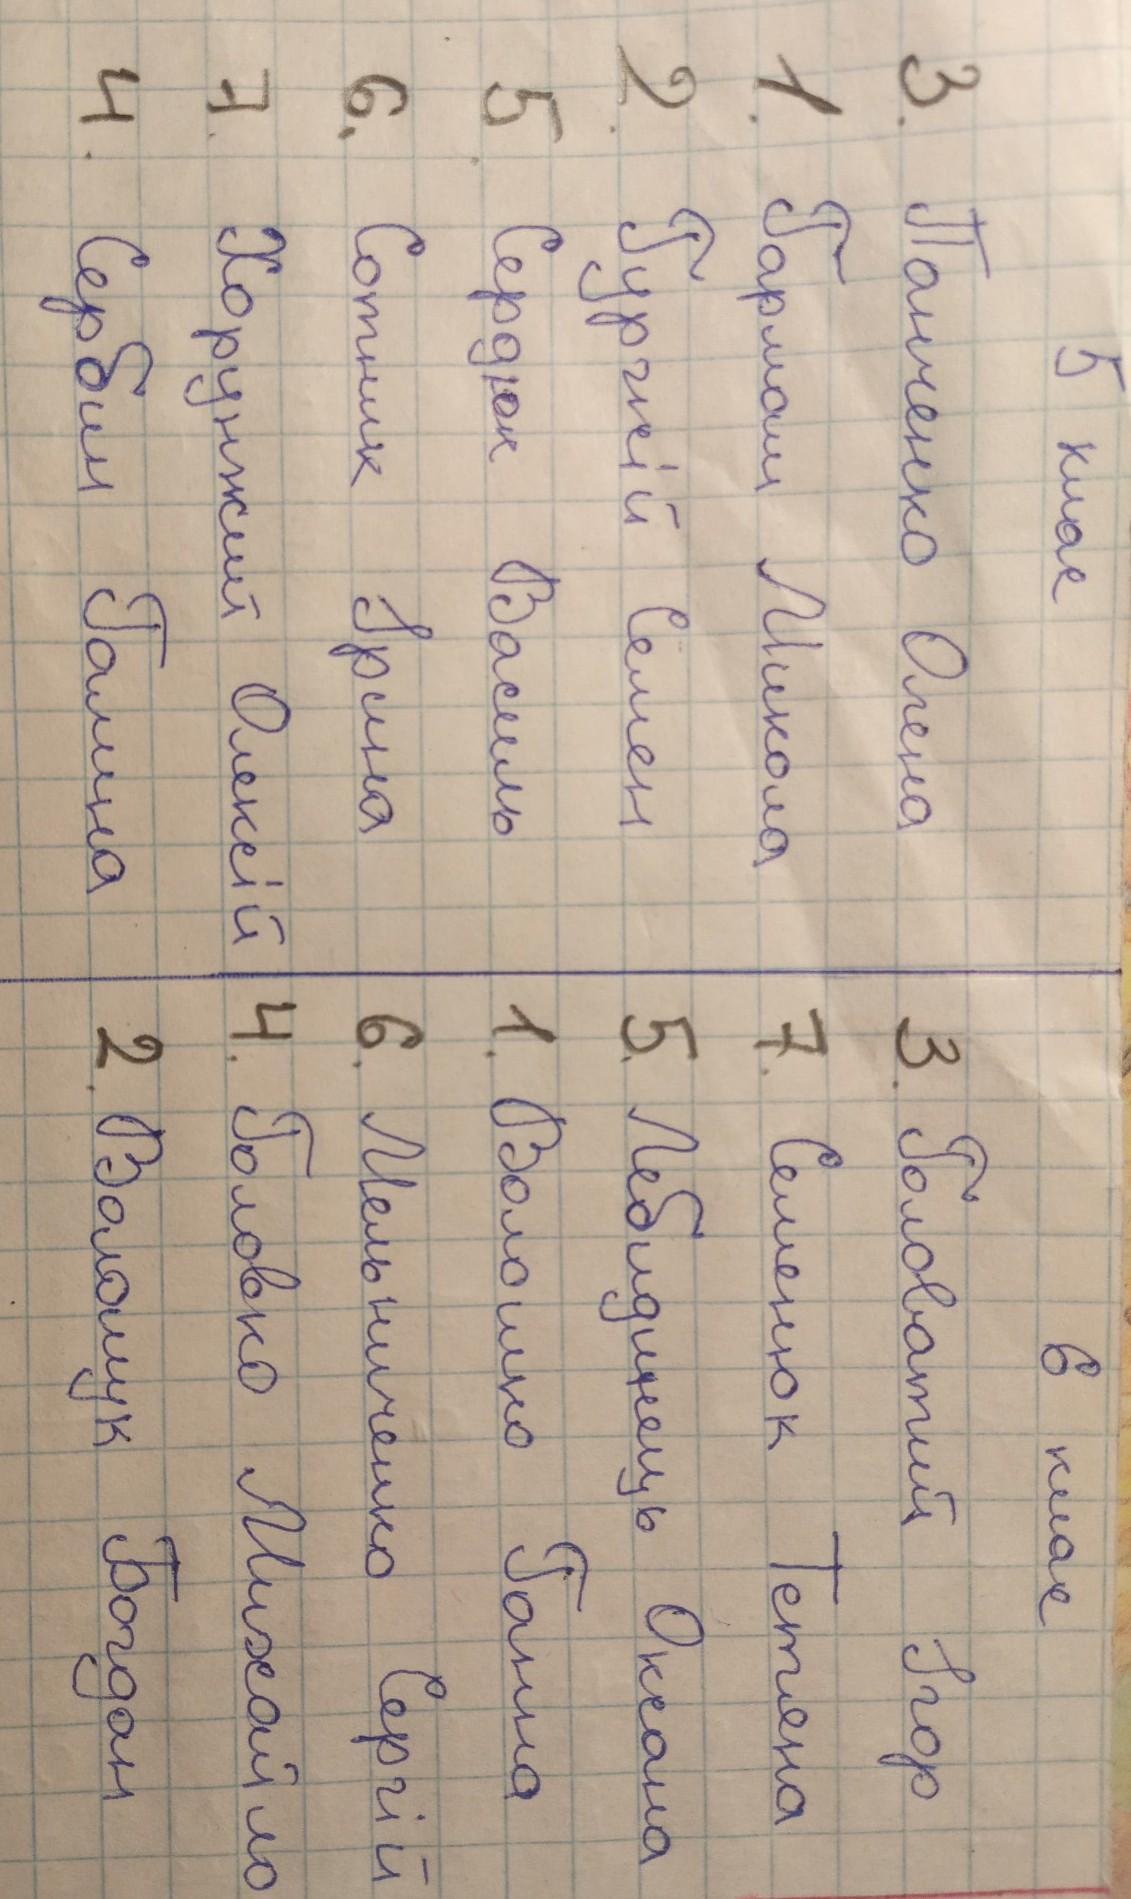 5 клас
3. Панченко Олена
1. Гармаш Микола
2. Гургкій Семен
5. Сердюк Василь
6. Сотник Ірина
7. Хорунжий Олексій
4. Сербин Галина
6 клас
3. Головатий Ігор
7. Семенюк Тетяна
5. Лебидинець Оксана
1. Волошно Ганна
6. Мельниченко Сергій
4. Головко Михайло
2. Волощук Богдан